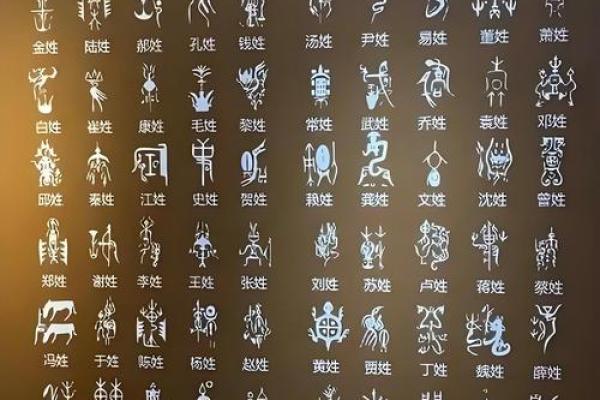 金姓 陆姓 郝姓 孔姓 钱姓 汤姓 尹姓 易姓 董姓 萧姓
白姓 崔姓 康姓 毛姓 黎姓 常姓 武姓 乔姓 袁姓 邓姓
邱姓 秦姓 江姓 史姓 贺姓 赖姓 龚姓 文姓 沈姓 曾姓
郑姓 谢姓 李姓 王姓 张姓 刘姓 苏姓 卢姓 蒋姓 蔡姓
冯姓 于姓 陈姓 杨姓 赵姓 黄姓 贾姓 丁姓 魏姓 薛姓